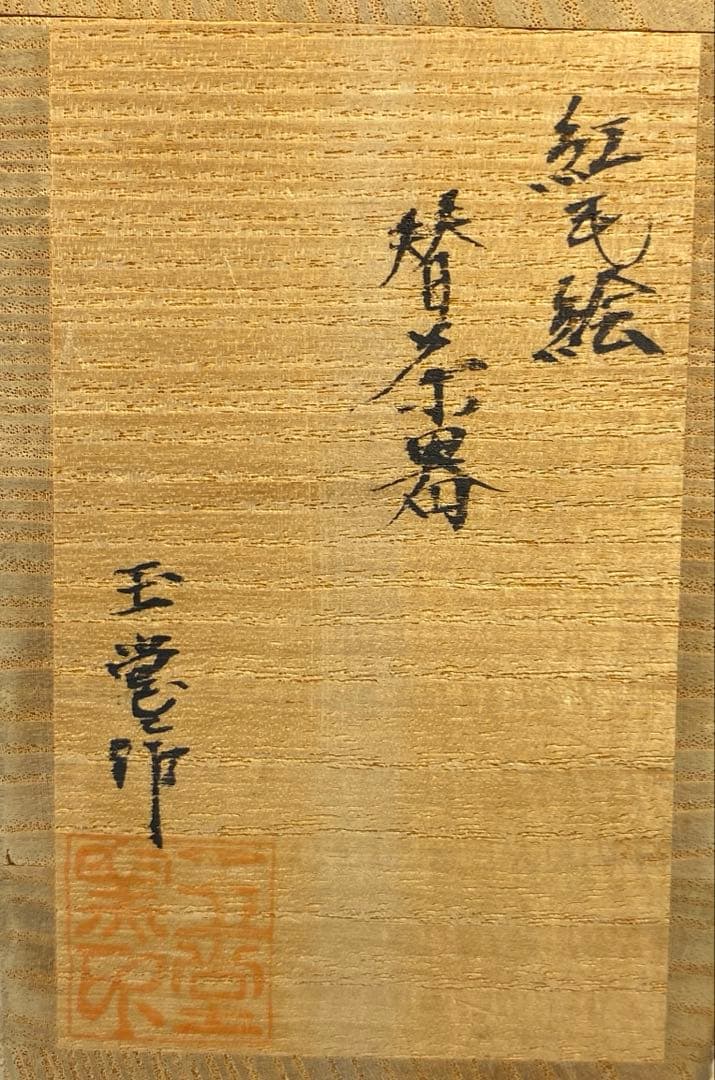 紅毛絵
替茶器
玉堂作